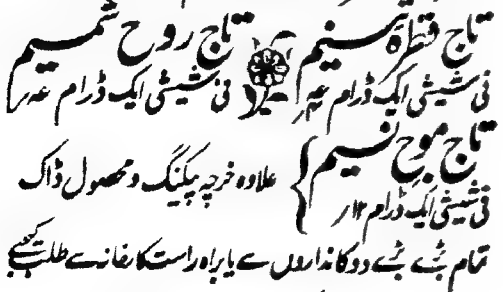 تاج قطرہ تسنیم
فی شیشی ایک ڈرام عہ
تاج روح شمیم
فی شیشی ایک ڈرام عہ
تاج موج نسیم
فی شیشی ایک ڈرام ۱۲؍
علاوہ خرچہ پیکنگ و محصول ڈاک
تمام بڑے بڑے دوکانداروں سے یا براہ راست کارخانہ سے طلب کیجئے